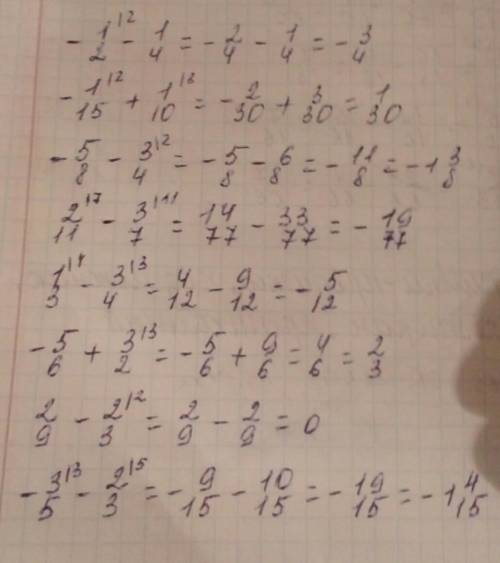 -1/2|2 - 1/4 = -2/4 - 1/4 = -3/4
-1/15|2 + 1/10|3 = -2/30 + 3/30 = 1/30
-5/8 - 3/4|2 = -5/8 - 6/8 = -11/8 = -1 3/8
2/11|7 - 3/7|11 = 14/77 - 33/77 = -19/77
1/3|4 - 3/4|3 = 4/12 - 9/12 = -5/12
-5/6 + 3/2|3 = -5/6 + 9/6 = 4/6 = 2/3
2/9 - 2/3|2 = 2/9 - 2/9 = 0
-3/5|3 - 2/3|5 = -9/15 - 10/15 = -19/15 = -1 4/15